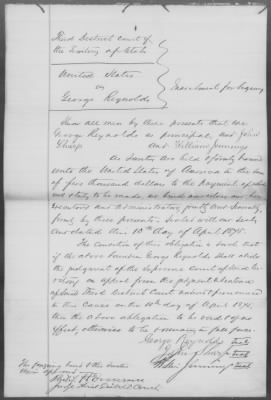 Third District Court of
the Territory of Utah
United States
vs
George Reynolds
Indictment for bigamy
Know all men by these presents that we
George Reynolds as principal, and John
Sharp and William Jennings
as sureties are held & firmly bound
unto the United States of America in the sum
of five thousand dollars to the payment of which
well and truly to be made we bind ourselves our heirs
executors and administrators jointly and severally
firmly by these presents. Sealed with our seals
and dated this 10th day of April 1875.
The condition of this obligation is such that
if the above bounden George Reynolds shall abide
the judgment of the Supreme Court of said Ter-
ritory on appeal from the judgment & sentence
of said Third District Court
in this cause on the 10th day of April 1875,
then the above obligation to be void & of no
effect, otherwise to be & remain in full force.
George Reynolds seal
Jno Sharp seal
Wm Jennings seal
The foregoing bond & the sureties
therein approved
Emerson
Judge Third District Court